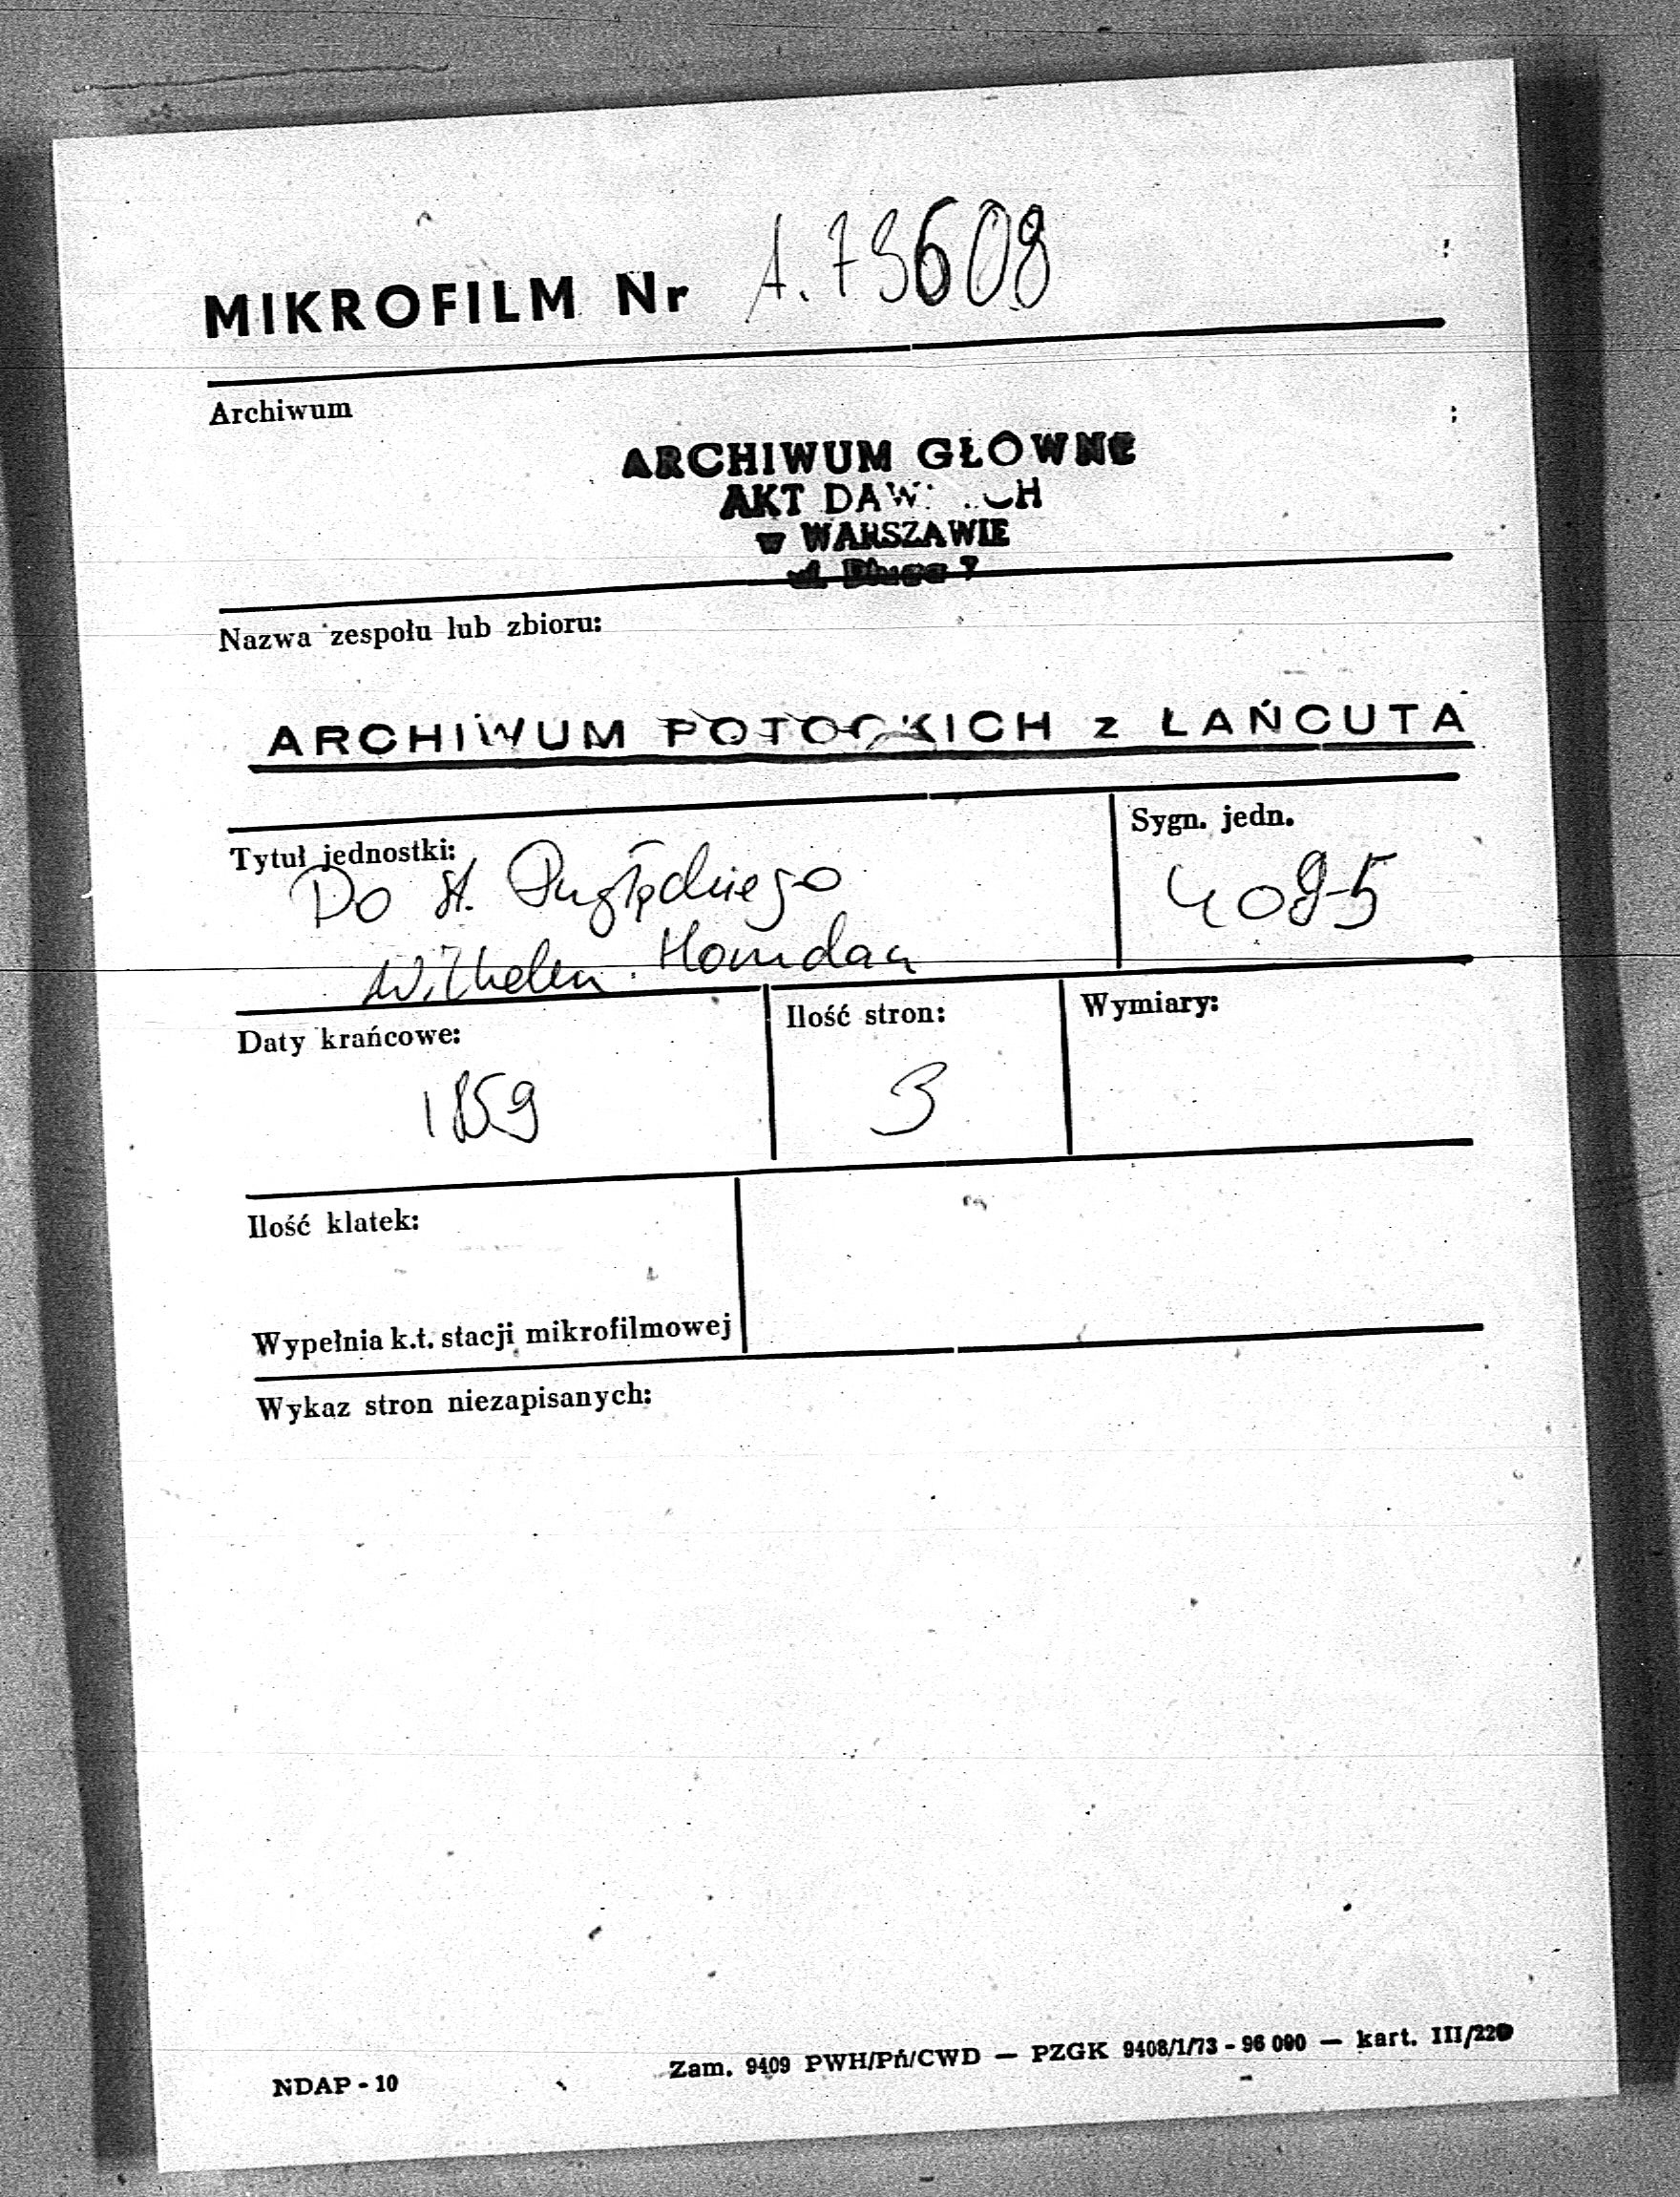 MIKROFILM Nr A. 73608
Archiwum
ARCHIWUM GŁÓWNE
AKT DAW CH
w WARSZAWIE
ul. Długa 7
Nazwa zespołu lub zbioru:
ARCHIWUM POTOCKICH z ŁAŃCUTA
Tytuł jednostki:
Do St.
Wilhelm
Sygn. jedn.
4095
Daty krańcowe:
1859
Ilość stron:
3
Wymiary:
Ilość klatek:
Wypełnia k.t. stacji mikrofilmowej
Wykaz stron niezapisanych:
NDAP - 10
Zam. 9409 PWH/Pń/CWD — PZGK 9408/1/73 - 96 000 — kart. III/220